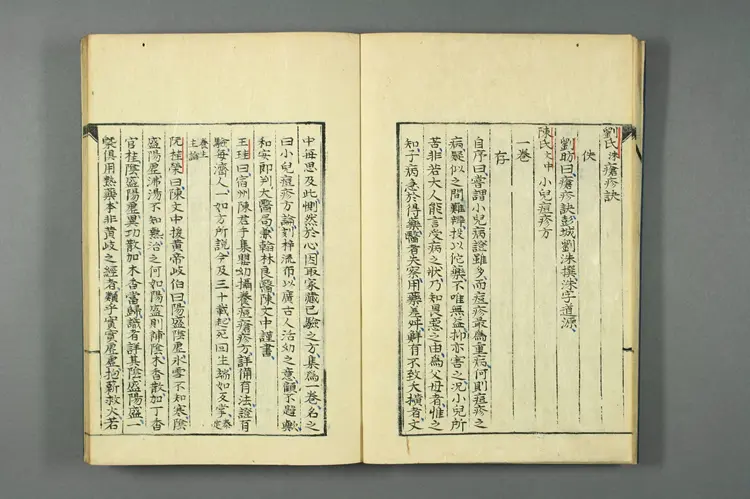 劉氏洙瘡疹訣
佚
劉昉曰瘡疹訣彭城劉洙撰洙字道源
陳氏文中小兒痘疹方
一卷
存
自序曰嘗謂小兒病證雖多而痘疹最爲重病何則痘疹之
病疑似之間難辨投以佗藥不唯無益抑亦害之況小兒所
苦非若大人能言受病之狀乃知畏惡之由爲父母者惟之
知子病急於得藥醫者失察用藥差舛鮮有不致大橫者文
中每思及此惻然於心因取家藏已驗之方集爲一卷名之
曰小兒痘疹方論刻梓流布以廣古人活幼之意顧不韙歟
和安郎判太醫局兼翰林良醫陳文中謹書
王珪曰宿州陳君手集嬰幼攝養痘瘡疹方詳備有法證百
驗每濟人一如方所說今及三十載起死回生端如反掌泰定
養生主論
阮桂榮曰陳文中援黃帝岐伯曰陽盛陰虛氷雪不知寒陰
盛陽虛沸湯不知熱治之何如陽盛則補陰木香散加丁香
官桂陰盛陽虛異功散加木香當歸識者詳其陰盛陽盛一
槩俱用熱藥本非黃歧之經者類乎實實虛虛抱薪救火若